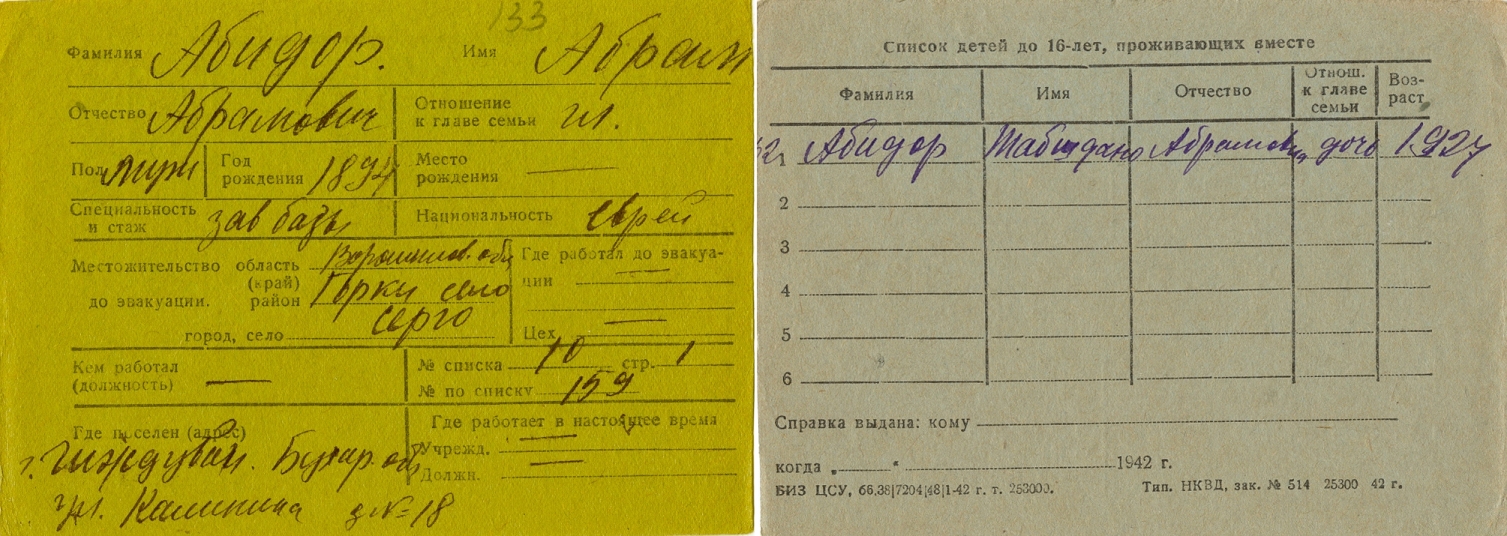 133
Фамилия Абидор. Имя Абрам
Отчество Абрамович Отношение к главе семьи гл.
Пол муж Год рождения 1894 Место рождения —
Специальность и стаж зав базы Национальность еврей
Местожительство до эвакуации. область (край) Ворошилов. обл
район Горки село
город, село Серго
Где работал до эвакуации — —
Цех
Кем работал (должность) —
№ списка 10 стр. 1
№ по списку 159
Где поселен (адрес)
г. Гиждуван. Бухар. обл
ул. Калинина д № 18
Где работает в настоящее время
Учрежд. —
Должн. —
Список детей до 16-лет, проживающих вместе
Фамилия Имя Отчество Отнош. к главе семьи Возраст
1 Абидор Абрамовна дочь 1927
2
3
4
5
6
Справка выдана: кому
когда „ “ 1942 г.
БИЗ ЦСУ, 66,38|7204|48|1-42 г. т. 253000. Тип. НКВД, зак. № 514 25300 42 г.